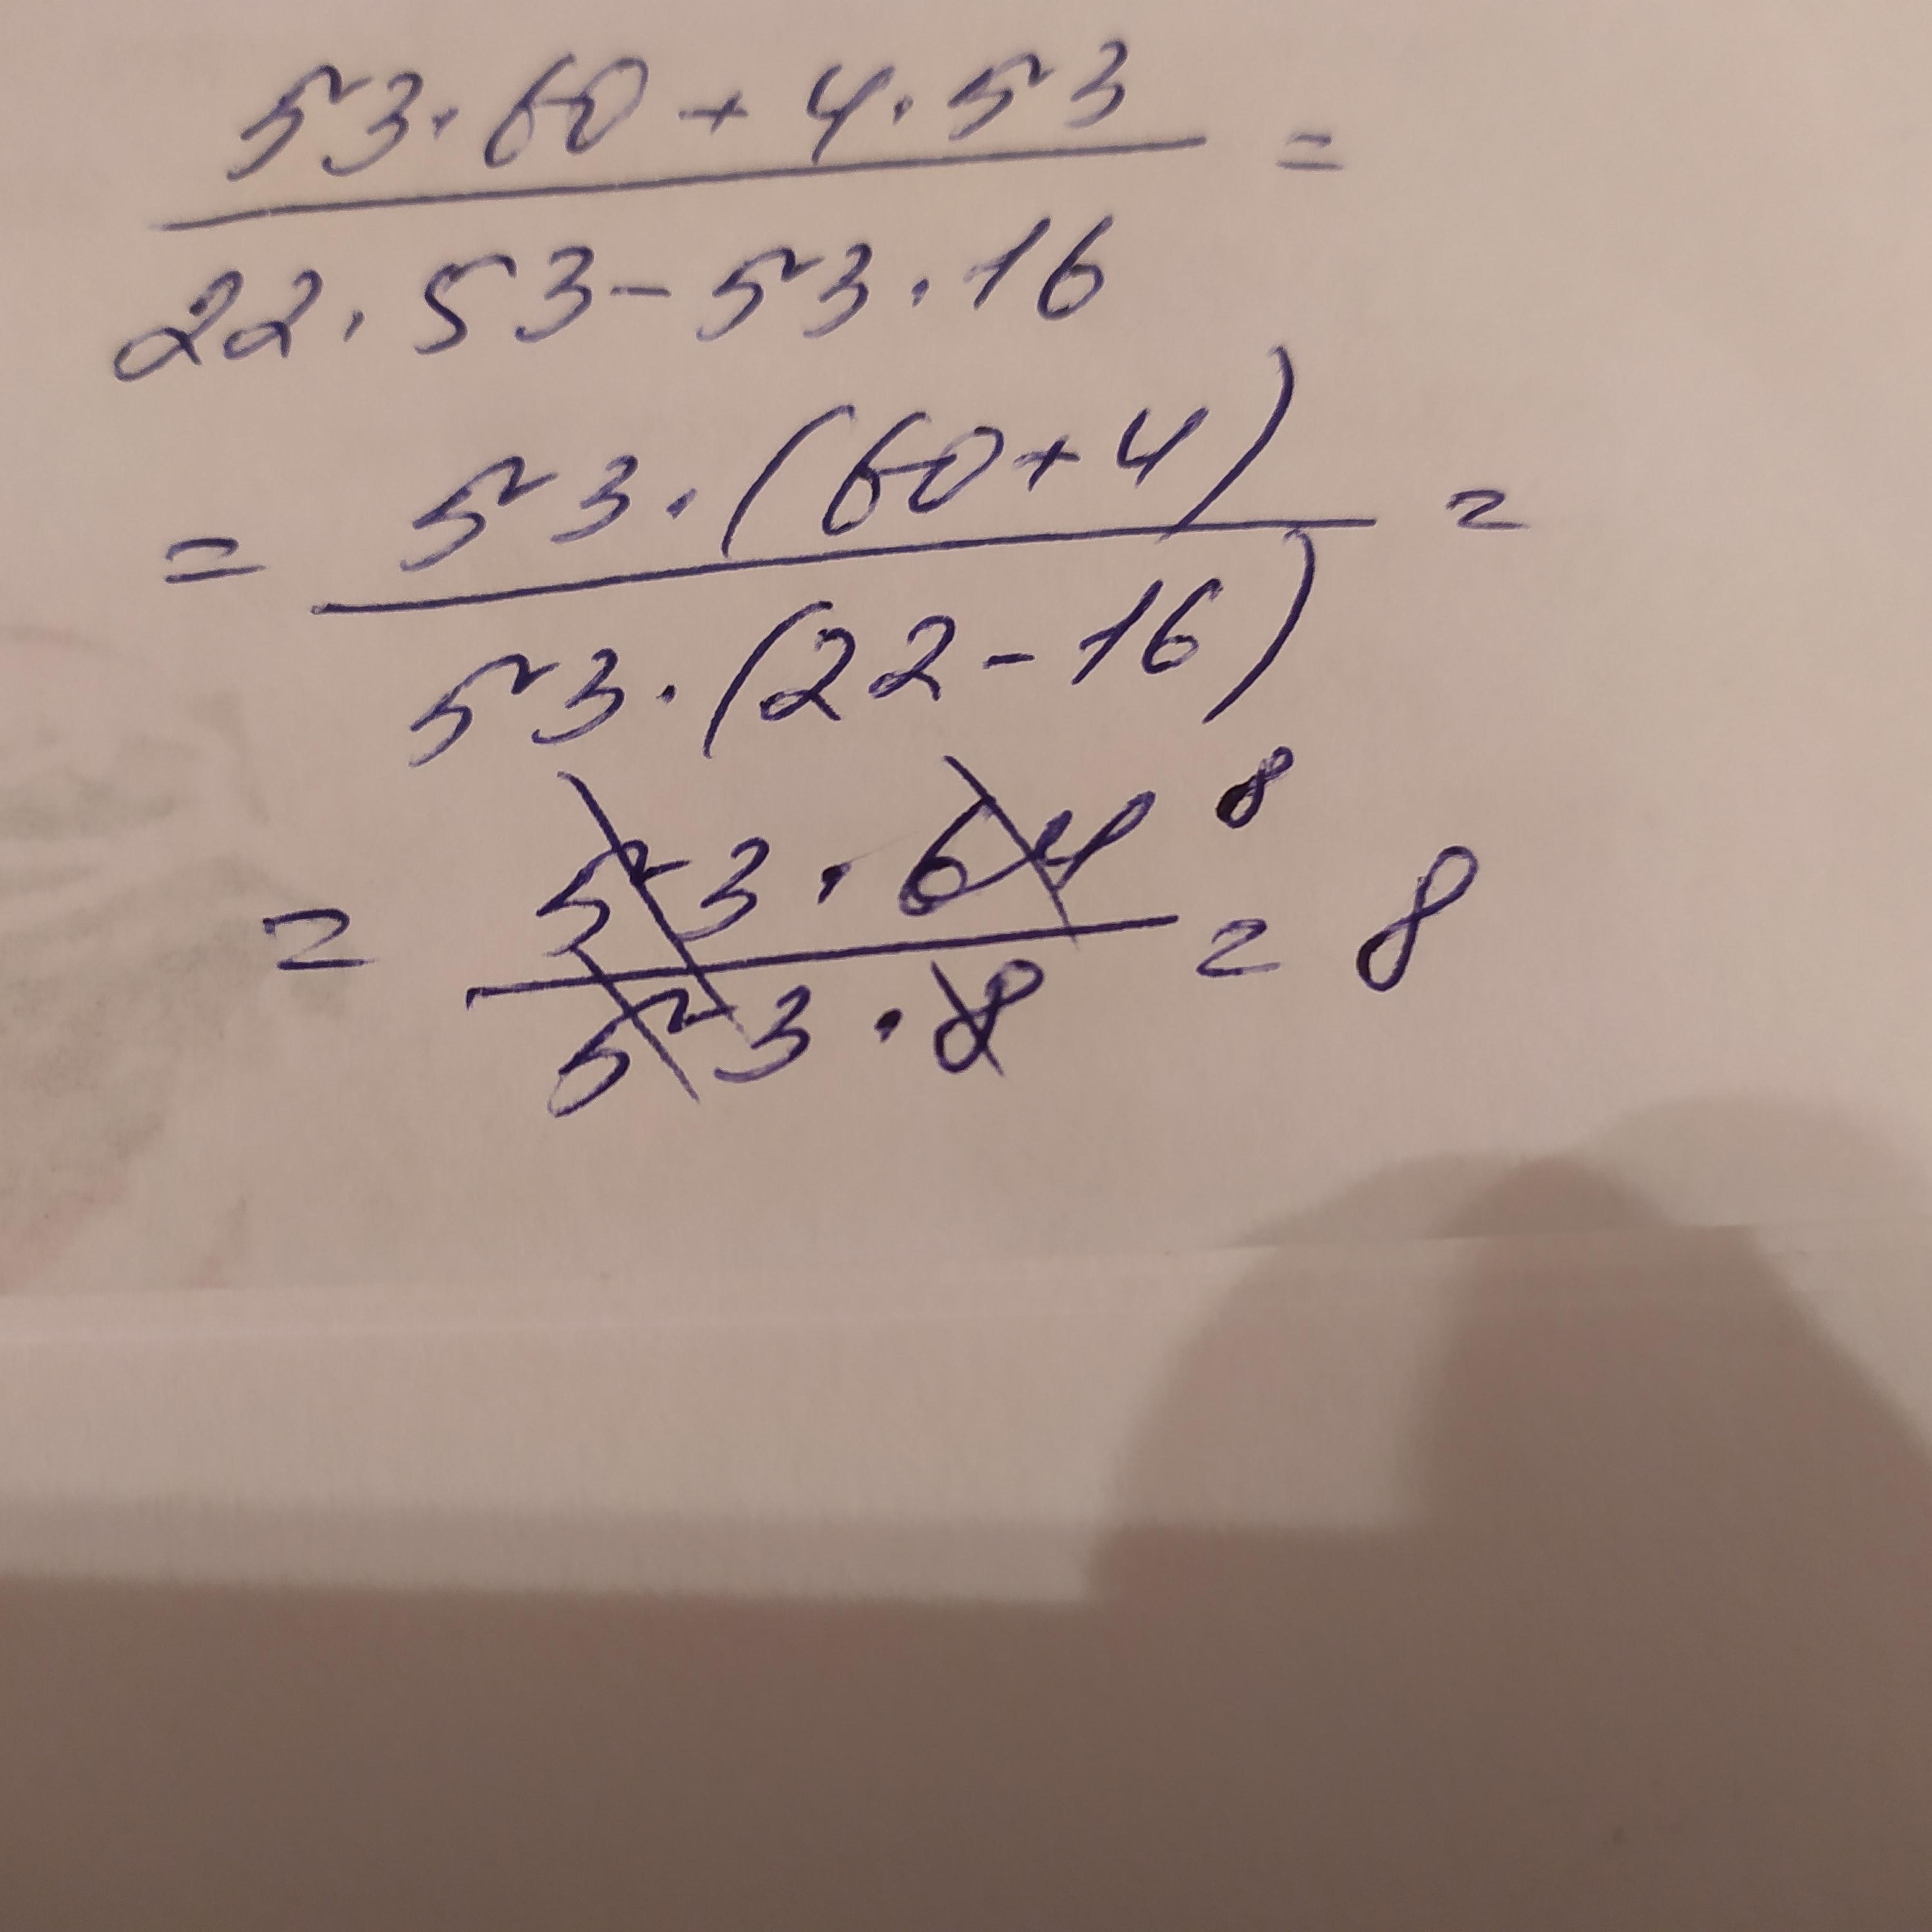 53·60+4·53 =
22·53-53·16
= 53·(60+4) =
53·(22-16)
= 53·64 8 = 8
53·8